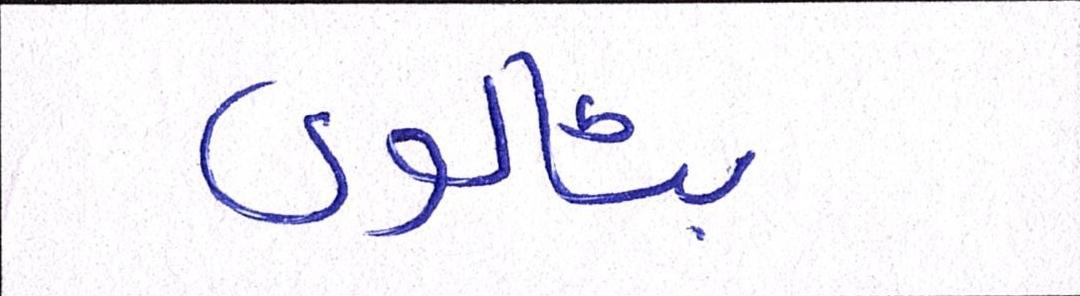 بٹالوی